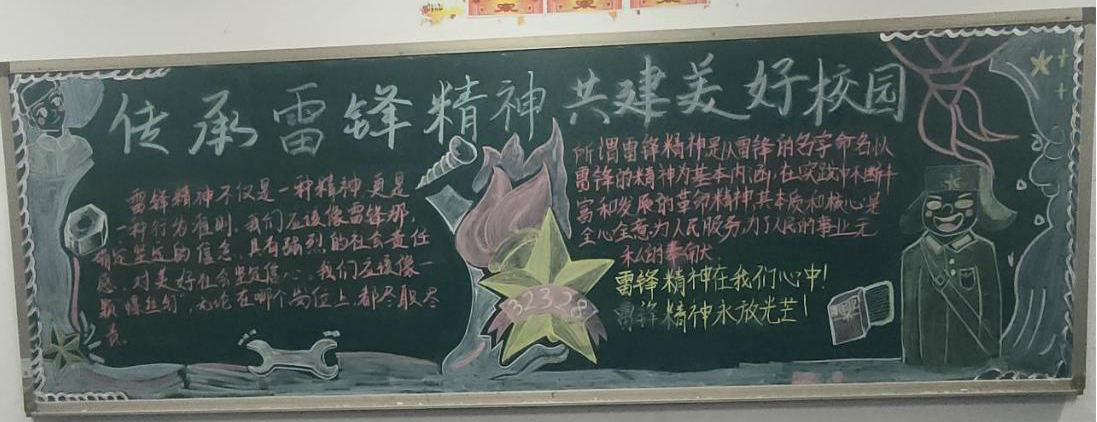 传承雷锋精神 共建美好校园
雷锋精神不仅是一种精神更是
一种行为准则。我们应该像雷锋那
确定坚定的信念,具有强烈的社会责任
感,对美好社会坚定信心,我们应该像一
颗"螺丝钉",无论在哪个岗位上,都尽职尽
责。
所谓雷锋精神是以雷锋的名字命名以
雷锋的精神为基本内涵,在实践中不断丰
富和发展的革命精神,其本质和核心是
全心全意为人民服务,为了人民的事业无
私的奉献
雷锋精神在我们心中!
雷锋精神永放光芒!
32328